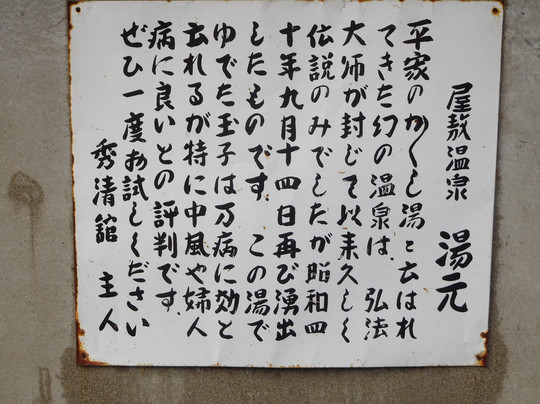 屋敷温泉 湯元
平家のかくし湯と云はれ
てきた幻の温泉は、弘法
大师が封じて以来久しく
伝説のみでしたが昭和四
十年九月十四日再び湧出
したものです。この湯で
ゆでた玉子は万病に効と
云れるが特に中風や婦人
病に良いとの評判です。
ぜひ一度お試しください
秀清館 主人